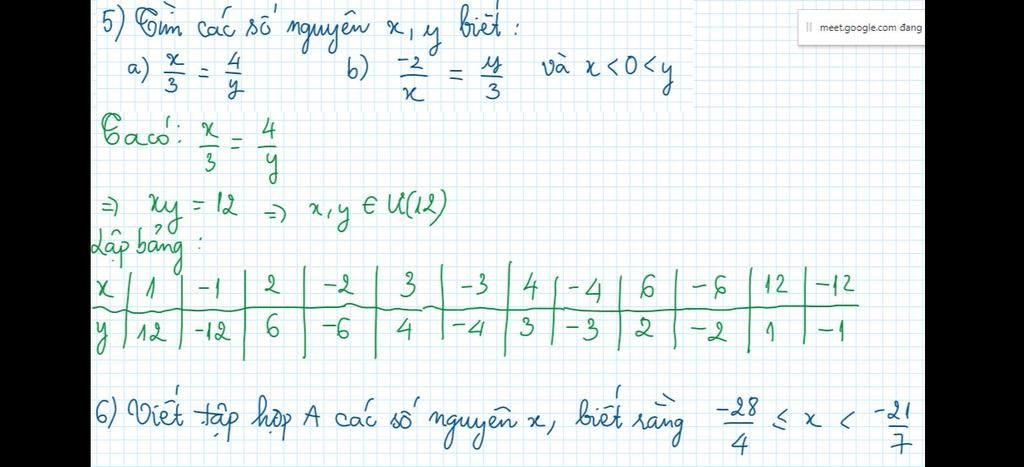 5) Tìm các số nguyên x, y biết :
meet.google.com đang
a) x/3 = 4/y b) -2/x = y/3 và x < 0 < y
Ta có: x/3 = 4/y
⇒ xy = 12 ⇒ x, y ∈ Ư(12)
Lập bảng :
x | 1 | -1 | 2 | -2 | 3 | -3 | 4 | -4 | 6 | -6 | 12 | -12
y | 12 | -12 | 6 | -6 | 4 | -4 | 3 | -3 | 2 | -2 | 1 | -1
6) Viết tập hợp A các số nguyên x, biết rằng -28/4 ≤ x < -21/7